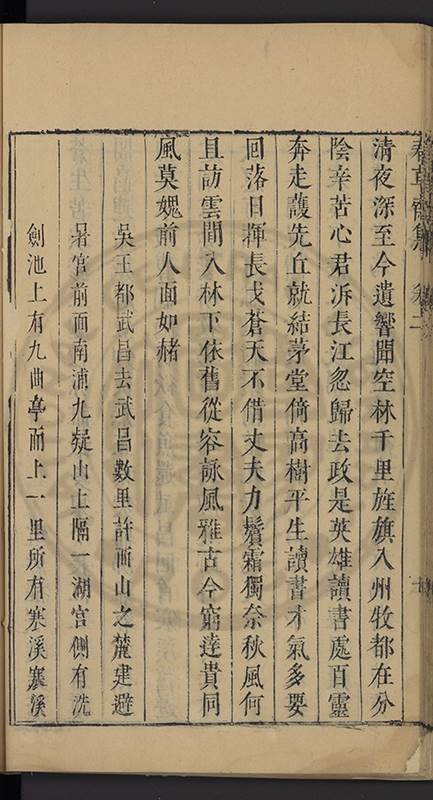 春草齋集 卷二
清夜深至今遺響聞空林千里旌旗入州牧都在分
陰辛苦心君泝長江忽歸去政是英雄讀書處百靈
奔走護先丘就結茅堂倚高樹平生讀書才氣多要
回落日揮長戈蒼天不借丈夫力鬢霜獨奈秋風何
且訪雲間入林下依舊從容詠風雅古今窮達貴同
風莫媿前人面如赭
吳王都武昌去武昌數里許西山之麓建避
暑宮前面南浦九疑山上隔一湖宮側有洗
劍池上有九曲亭而上一里所有寒溪寒溪